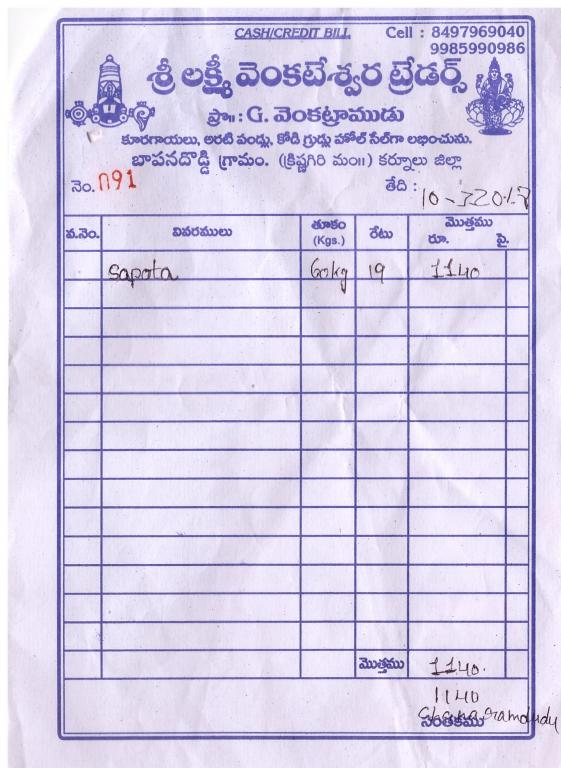 CASH/CREDIT BILL Cell : 8497969040
9985990986
శ్రీ లక్ష్మీ వెంకటేశ్వర ట్రేడర్స్
ప్రొ॥ : G. వెంకట్రాముడు
కూరగాయలు, అరటి పండ్లు, కోడి గ్రుడ్లు హోల్ సేల్‌గా లభించును.
బాపనదొడ్డి గ్రామం. (క్రిష్ణగిరి మం॥) కర్నూలు జిల్లా
నెం. 091 తేది :
వ.నెం. వివరములు తూకం (Kgs.) రేటు మొత్తము రూ. పై.
Sapota 60kg 19 1140
మొత్తము 1140.
1140
సంతకము